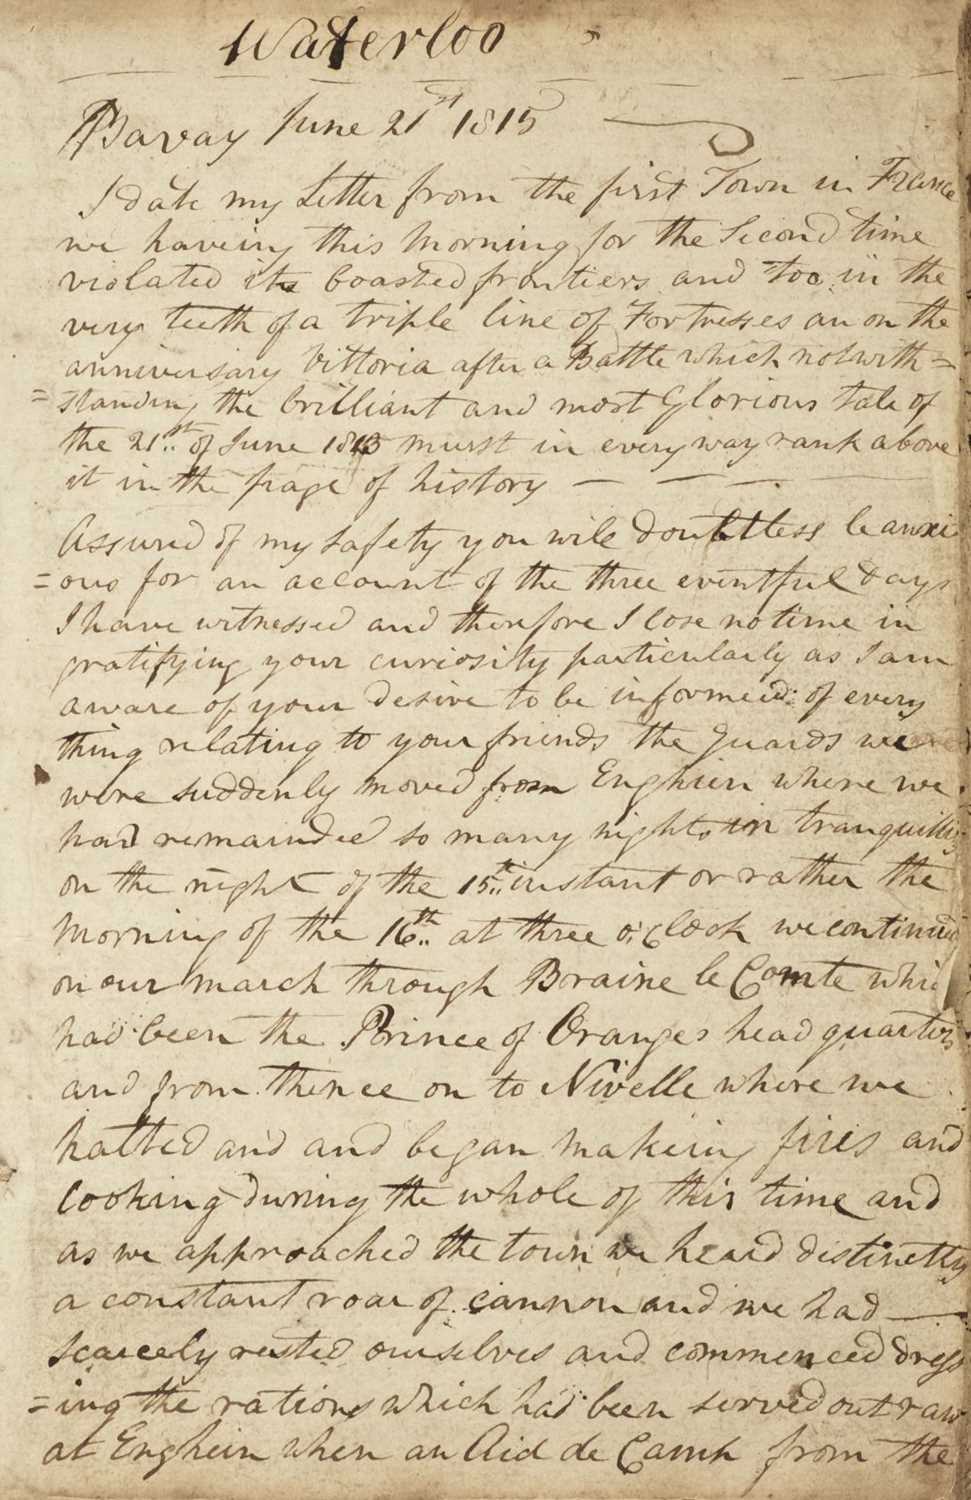 Waterloo
Bavay June 21st 1815
I date my Letter from the first Town in France
we haveing this Morning for the Second time
violated its boasted frontiers and too in the
very teeth of a triple line of Fortresses an on the
anniversary Vittoria after a Battle which notwith=
=standing the brilliant and most Glorious tale of
the 21st of June 1813 murst in every way rank above
it in the page of history
Assured of my safety you will doubtless be anxi
=ous for an account of the three eventful days
I have witnessed and therefore I lose no time in
gratifying your curiosity particularly as I am
aware of your desire to be informed of every
thing relating to your friends the Guards we
were suddenly moved from Enghien where we
had remainded so many nights in tranquility
on the night of the 15th instant or rather the
Morning of the 16th at three o'Clock we continued
on our march through Braine le Comte which
had been the Prince of Oranges head quarters
and from thence on to Nivelle where we
halted and and began makeing fires and
Cooking during the whole of this time and
as we approached the town we heard distinctly
a constant roar of cannon and we had
scarcely rested ourselves and commenced dress
=ing the rations which had been served out raw
at Enghein when an Aid de Camp from the